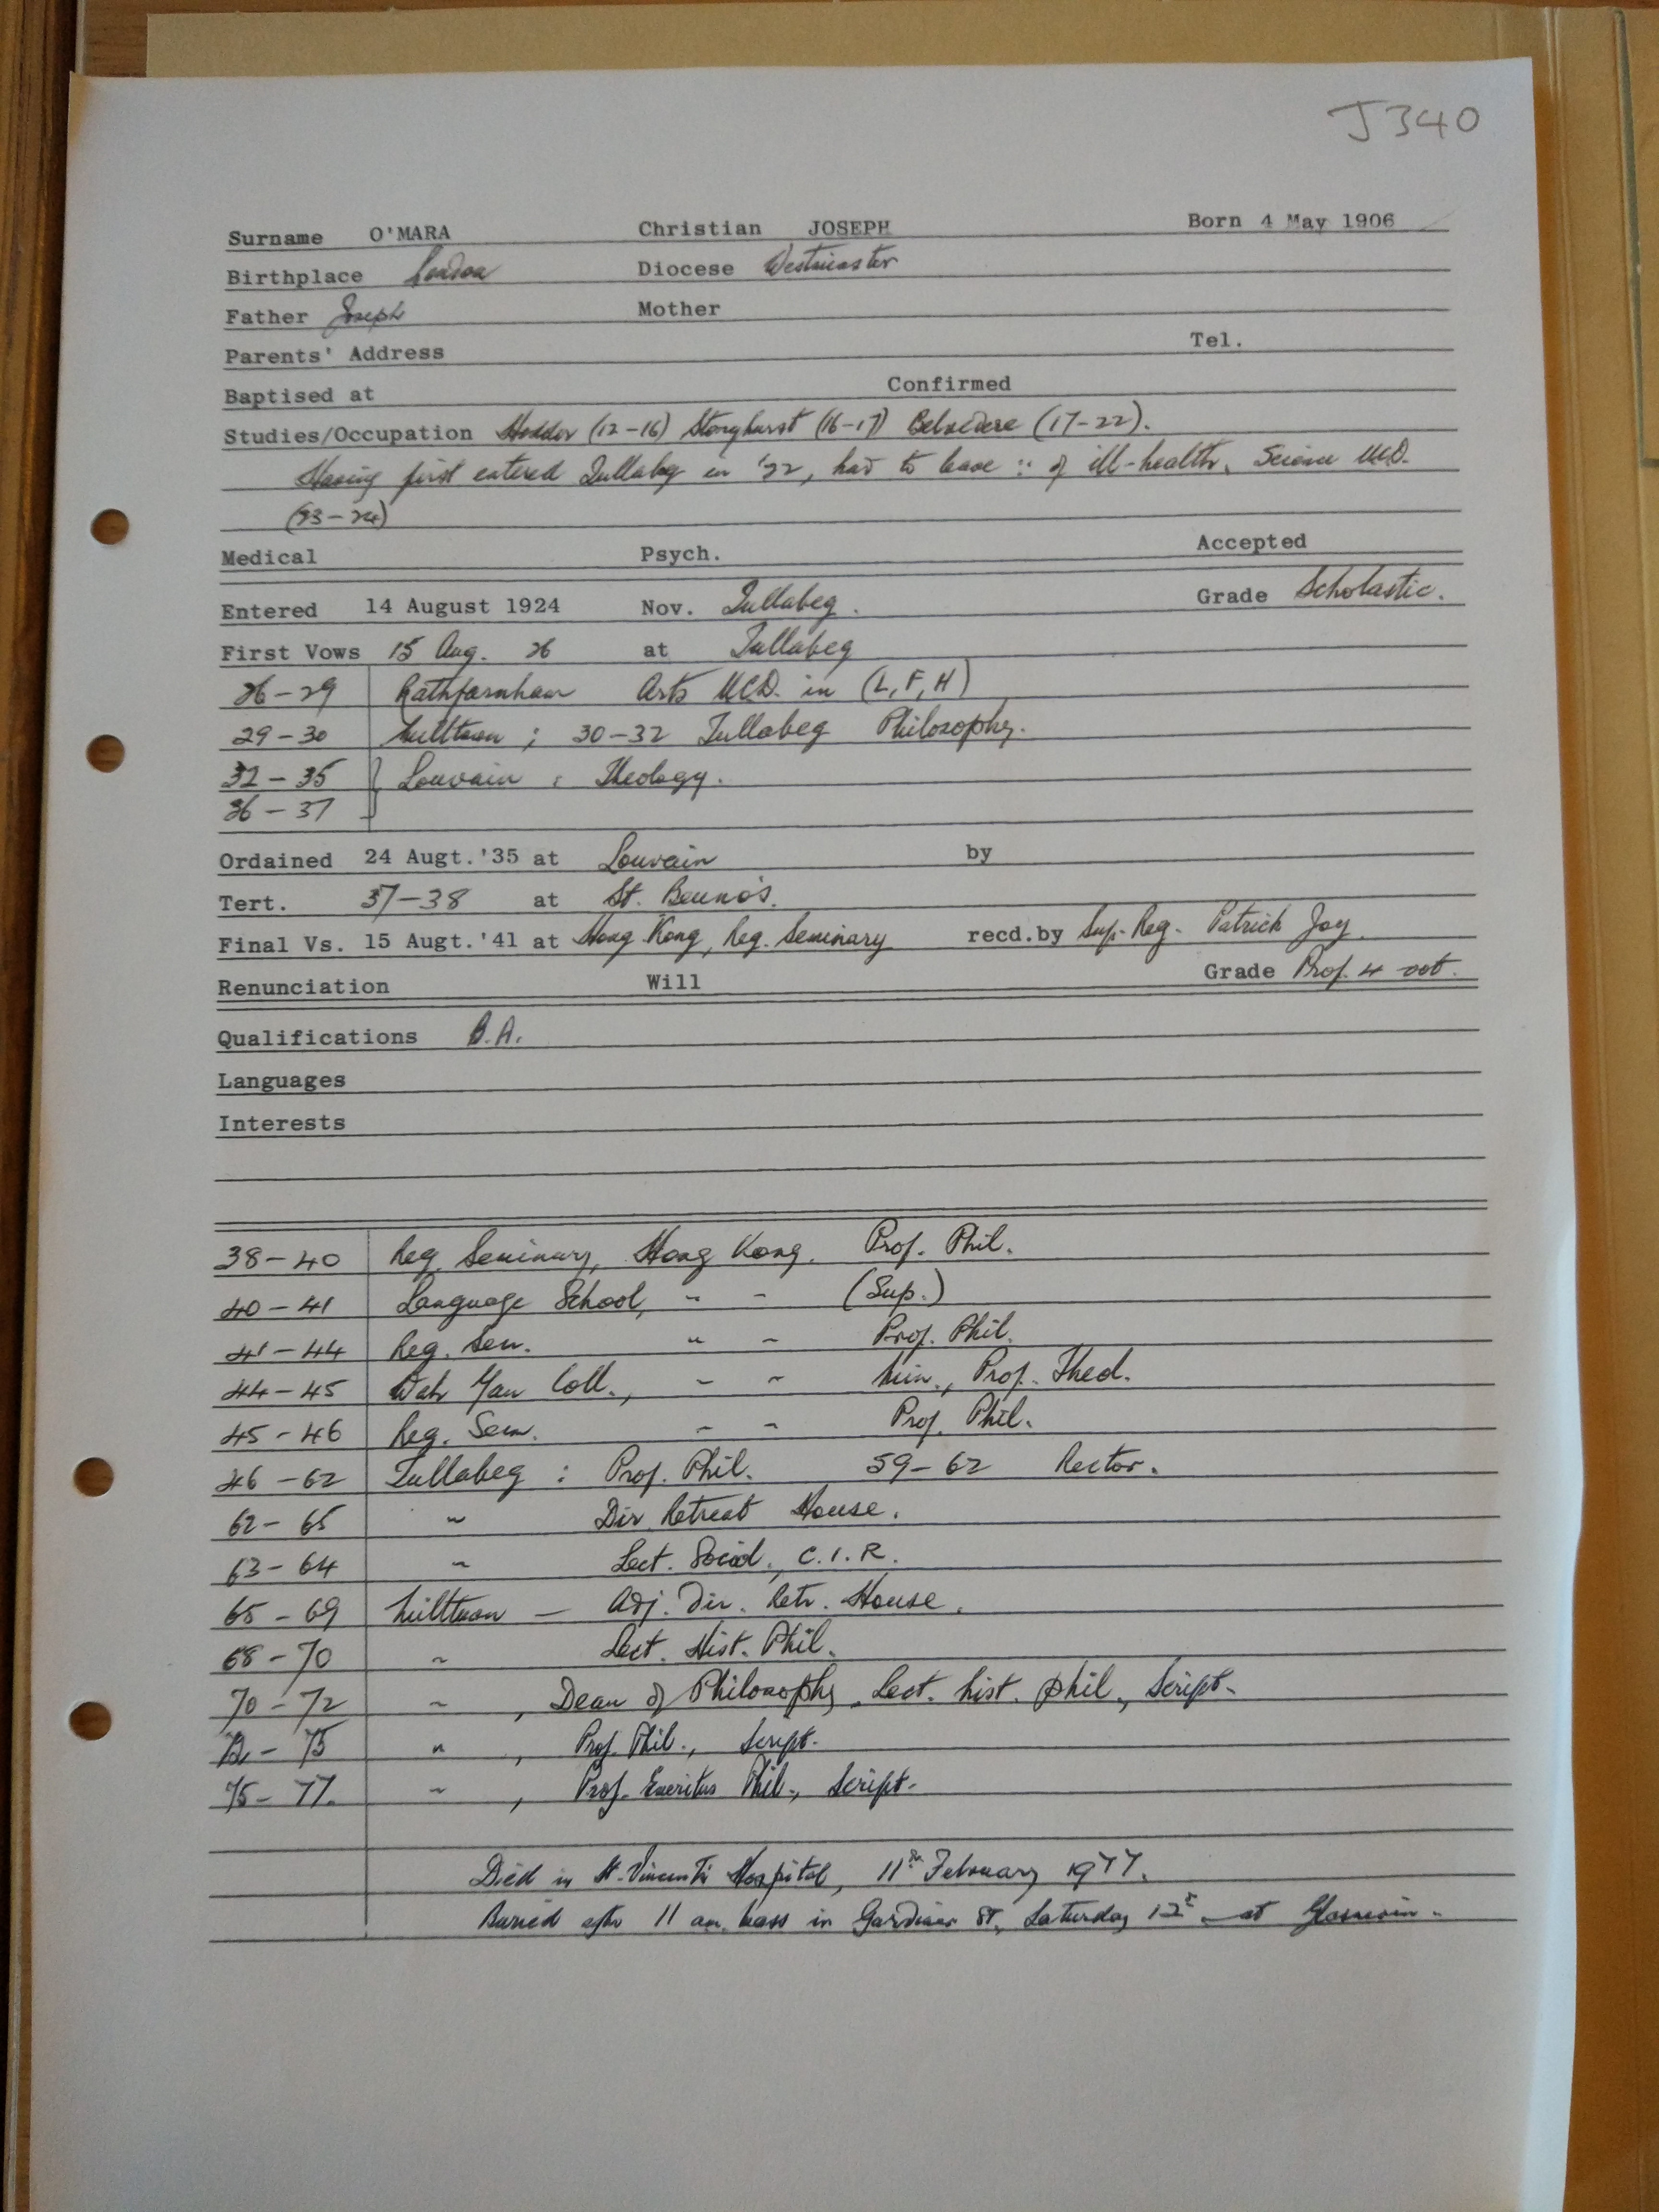 J340
Surname O'MARA Christian JOSEPH Born 4 May 1906
Birthplace London Diocese Westminster
Father Joseph Mother
Parents' Address Tel.
Baptised at Confirmed
Studies/Occupation Hodder (12-16) Stonyhurst (16-17) Belvedere (17-22).
Having first entered Tullabeg in '22, had to leave ∵ of ill-health. Science UCD.
(23-24)
Medical Psych. Accepted
Entered 14 August 1924 Nov. Tullabeg. Grade Scholastic.
First Vows 15 Aug. 26 at Tullabeg
26-29 Rathfarnham Arts UCD. in (L, F, H)
29-30 Milltown ; 30-32 Tullabeg Philosophy.
32-35 } Louvain : Theology.
36-37
Ordained 24 Augt.'35 at Louvain by
Tert. 37-38 at St. Beuno's.
Final Vs. 15 Augt.'41 at Hong Kong, Reg. Seminary recd.by Sup. Reg. Patrick Joy.
Renunciation Will Grade Prof. 4 vot.
Qualifications B.A.
Languages
Interests
38-40 Reg. Seminary, Hong Kong. Prof. Phil.
40-41 Language School, " " (Sup.)
41-44 Reg. Sem. " " Prof. Phil.
44-45 Wah Yan Coll., " " Min., Prof. Theol.
45-46 Reg. Sem. " " Prof. Phil.
46-62 Tullabeg : Prof. Phil. 59-62 Rector.
62-65 " Dir. Retreat House.
63-64 " Lect. Sociol., C.I.R.
65-69 Milltown - Adj. Dir. Retr. House.
68-70 " Lect. Hist. Phil.
70-72 " , Dean of Philosophy, Lect. hist. phil., Script.
72-75 " , Prof. Phil., Script.
75-77. " , Prof. Emeritus Phil., Script.
Died in St. Vincent's Hospital, 11th February 1977.
Buried after 11 am. Mass in Gardiner St, Saturday at Glasnevin.